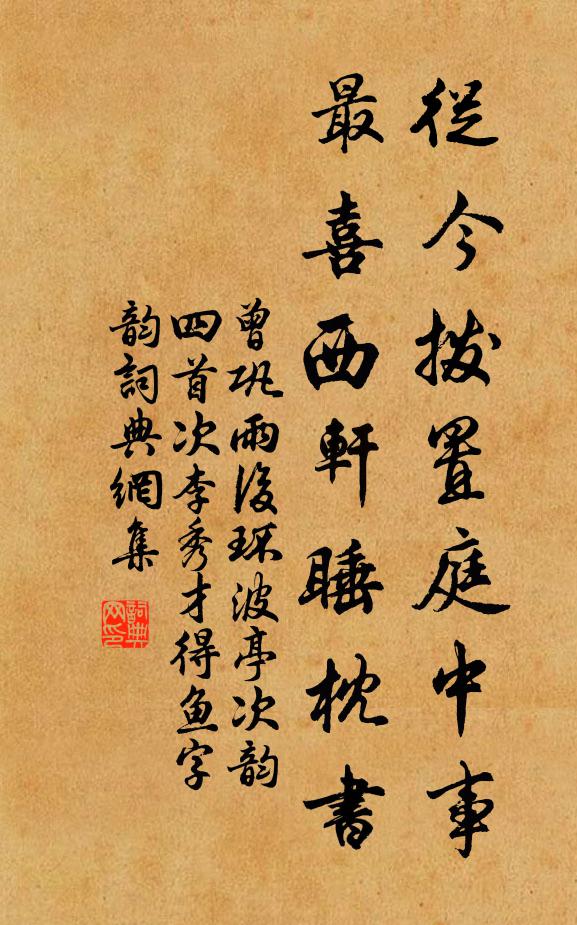 從今撥置庭中事
最喜西軒睡枕書
曾巩雨後环波亭次韵
四首次李秀才得鱼字
韵詞典網集
詞典网印